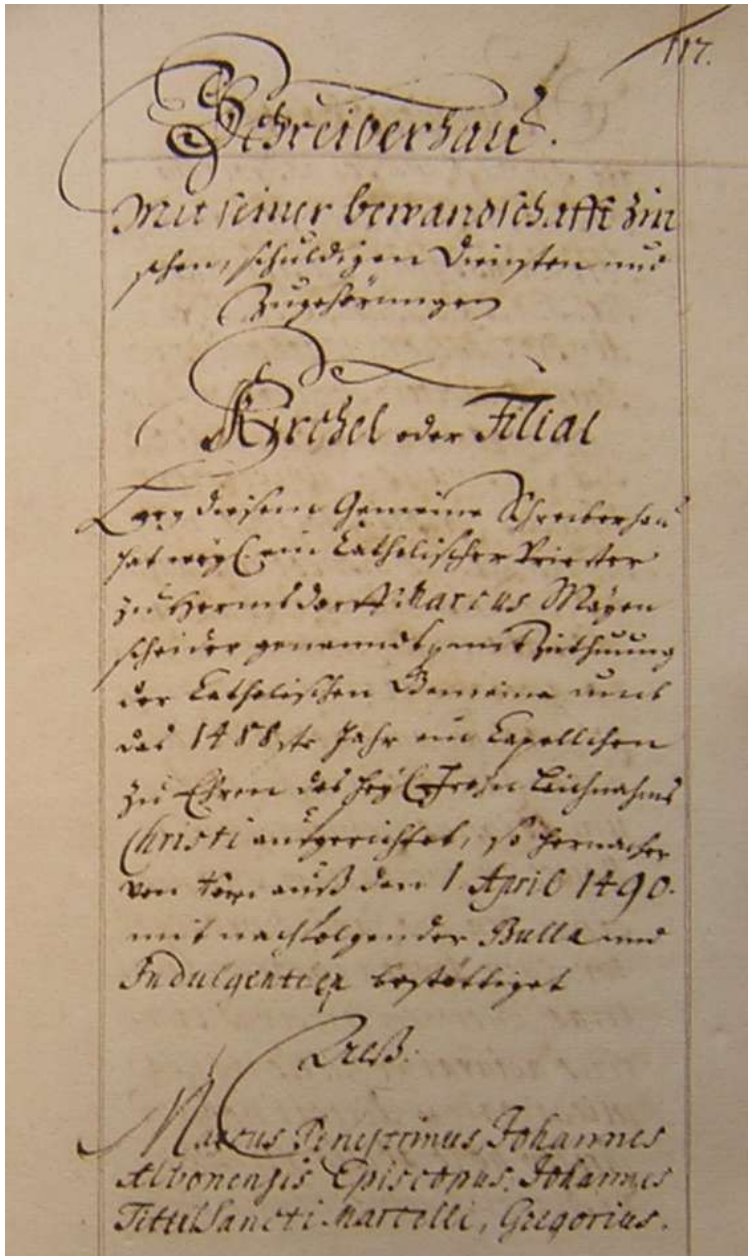 117.
Schreiberhau.
Mit seiner bewandschafft Zin
sen, schuldigen Diensten und
Zugehörungen
Kirchel oder Filial
Bey diesem Gemeine Schreiberhau
hat weyl. ein Catholischer Priester
zu Hermbsdorff Marcus
scheider genanndt, mit Zuthuung
der Catholischen Gemeine umb
das 1488ste Jahr ein Capellchen
zu Ehren des heyl. Frohn Leichnahms
Christi aufgerichtet, so hernacher
von auß den 1 April 1490.
mit nachfolgender Bulla und
Indulgentien bestättiget
Alß:
Marcus Johannes
Albonensis Episcopus, Johannes
Titul Sancti Marcelli, Gregorius.